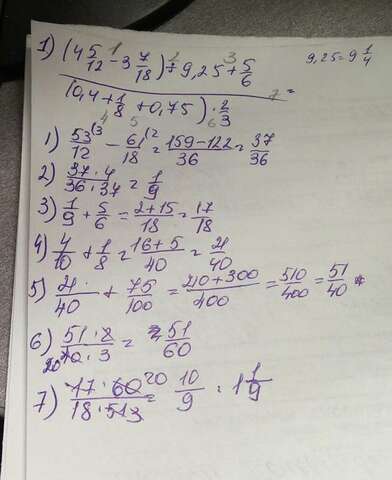 1) (4 5/12 - 3 7/18) : 9,25 + 5/6   9,25 = 9 1/4
(0,4 + 1/8 + 0,75) · 2/3 =
1) 53/12 (3 - 61/18 (2 = 159-122/36 = 37/36
2) 37·4/36·37 = 1/9
3) 1/9 + 5/6 = 2+15/18 = 17/18
4) 4/10 + 1/8 = 16+5/40 = 21/40
5) 21/40 + 75/100 = 210+300/400 = 510/400 = 51/40
6) 51·2/40·3 = 51/60
7) 17·60 20/18·51 3 = 10/9 = 1 1/9